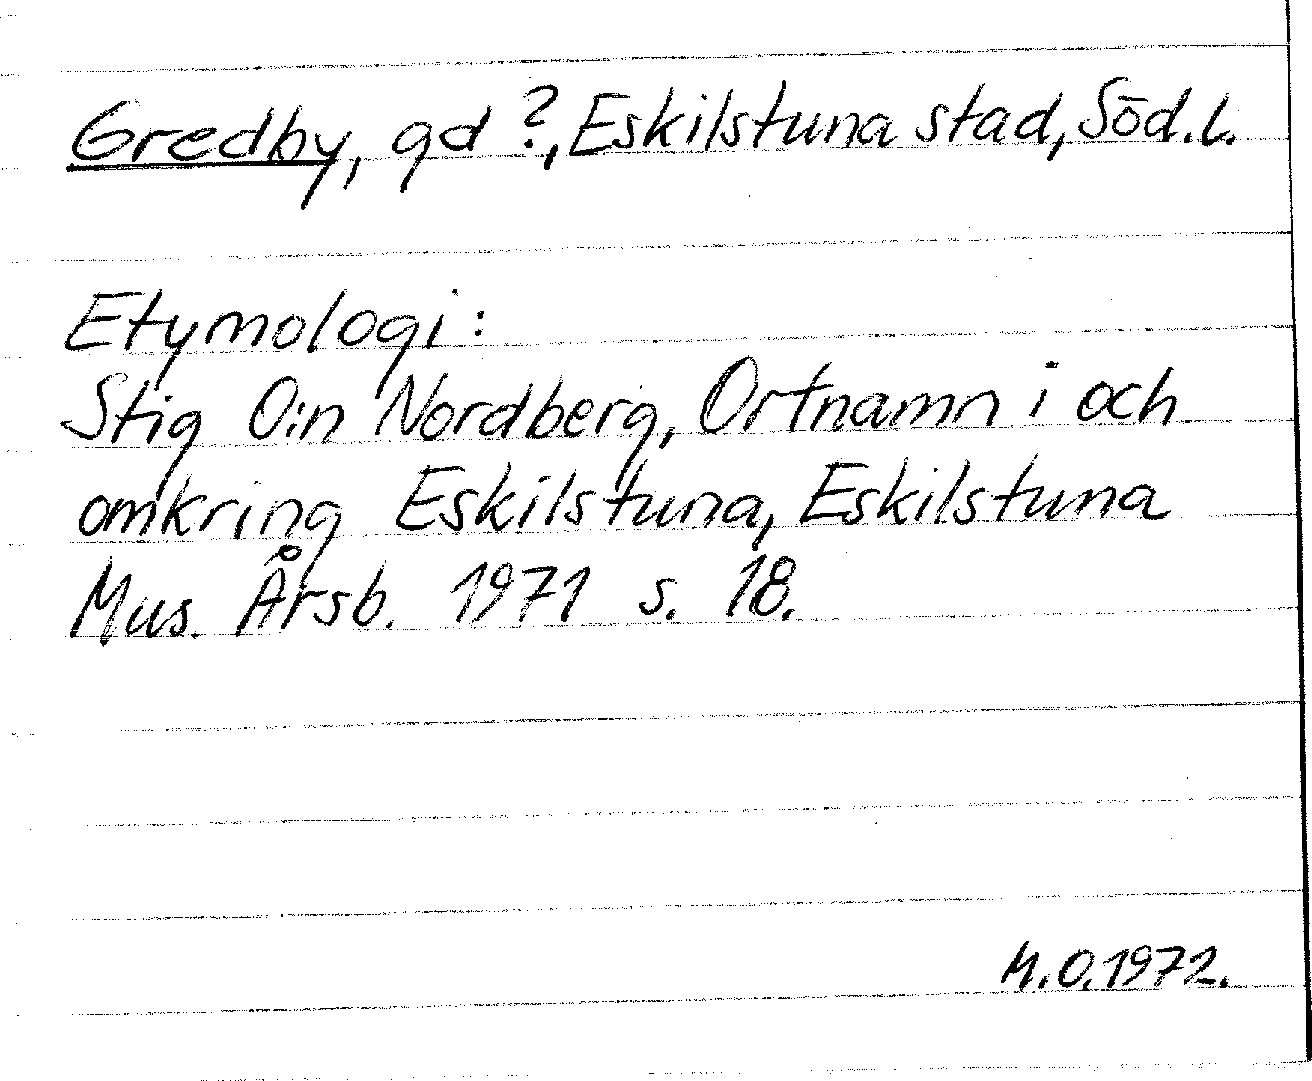 Gredby, gd ?, Eskilstuna stad, Söd.l.
Etymologi:
Stig O:n Nordberg, Ortnamn i och
omkring Eskilstuna, Eskilstuna
Mus. Årsb. 1971 s. 18.
M.O.1972.